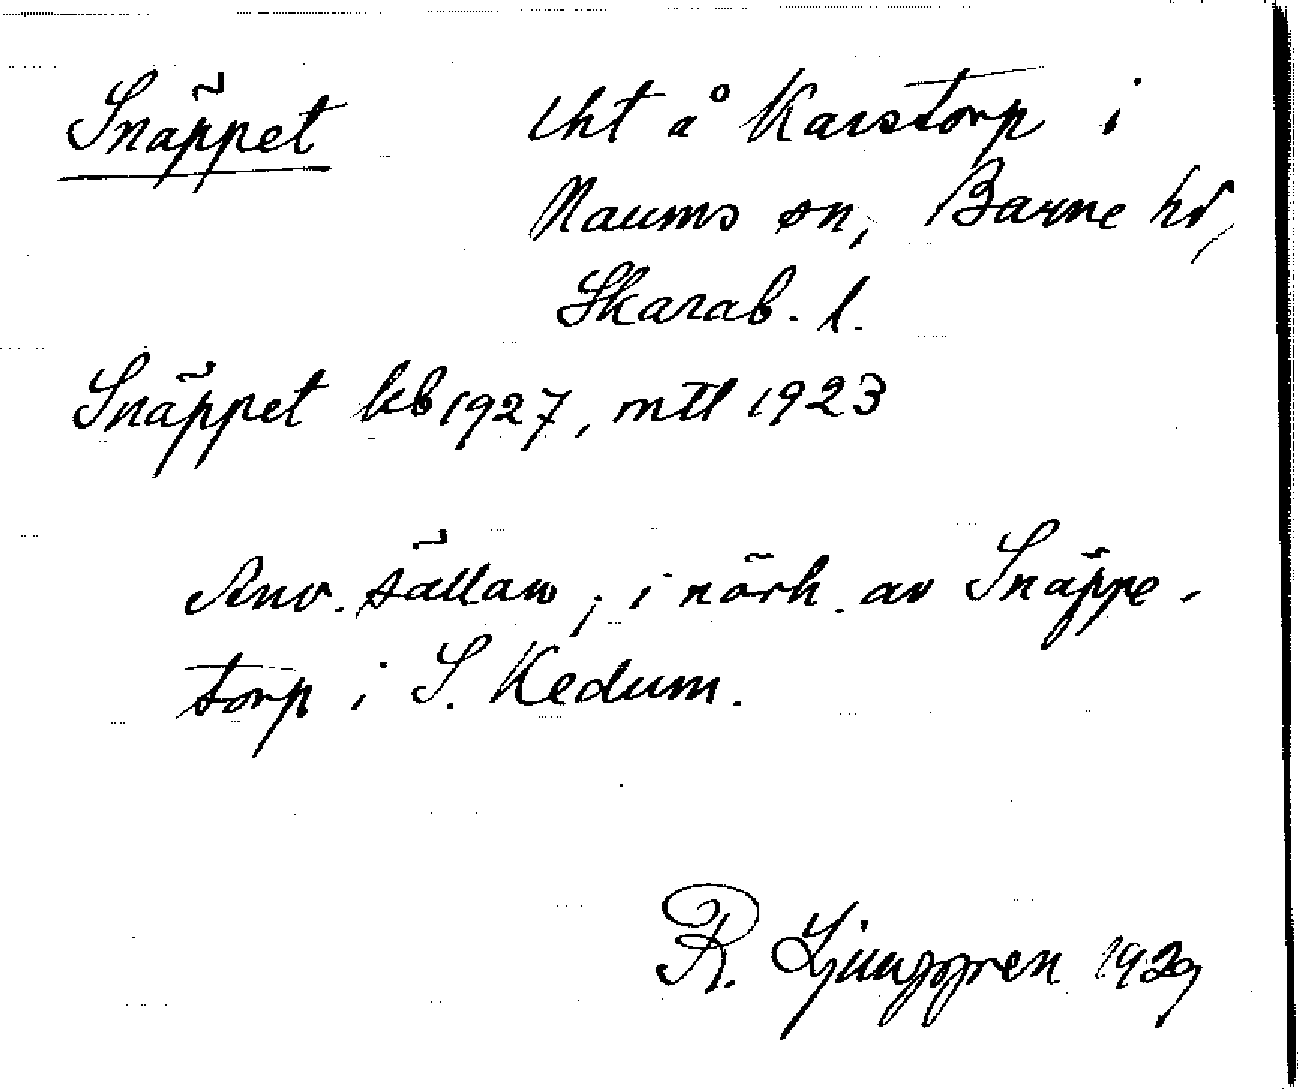 Snäppet lht å Karstorp i
Naums sn, Barne hd,
Skarab. l.
Snäppet kb 1927, mtl 1923
Anv. sällan; i närh. av Snäppe-
torp i S. Kedum.
R. Ljunggren 1929